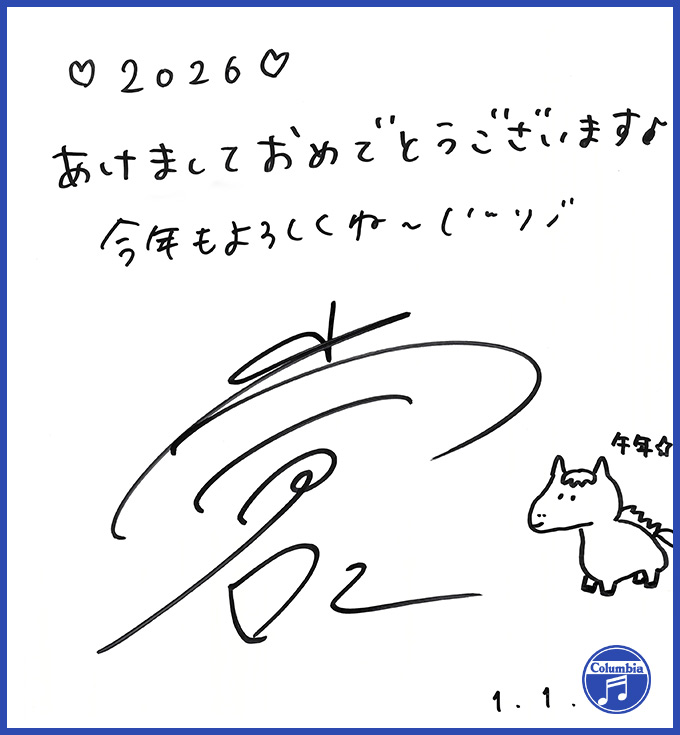 ♡2026♡
あけましておめでとうございます♪
今年もよろしくね～
午年☆
1.1.
Columbia